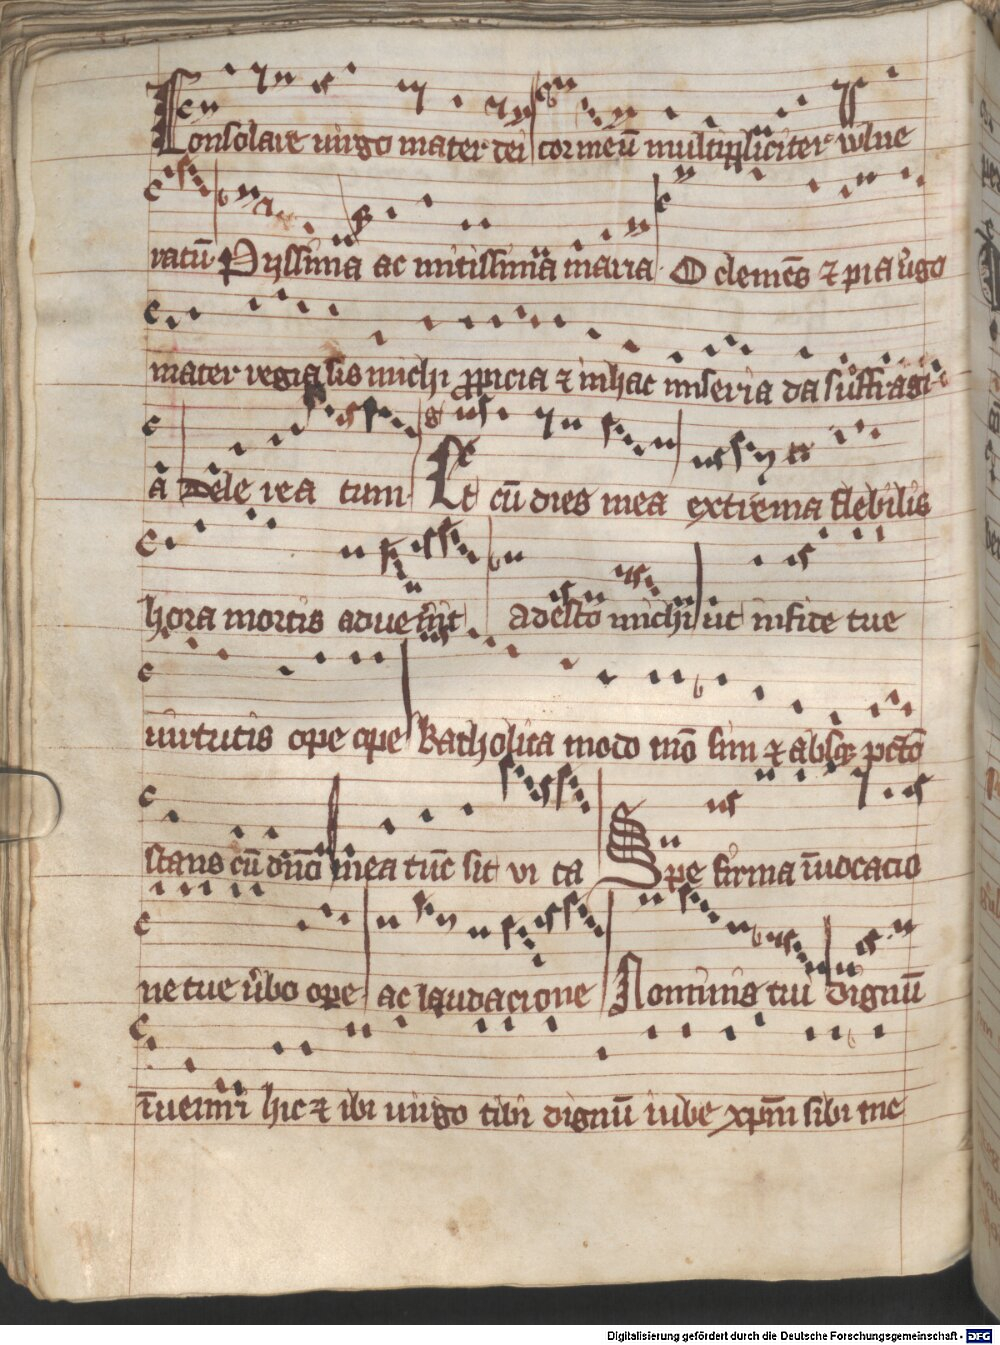 Consolare uirgo mater dei cor meū multipliciter wlne
ratū Pijssima ac mitissima maria O clemēs ⁊ pia uͥgo
mater regia sis michi ꝓpicia ⁊ in hac miseria da suffragi
ā Dele rea tum Et cū dies mea extrema flebilis
hora mortis aduenͥit adesto michi ut in fide tue
uirtutis ope ope katholica modo mō sim ⁊ absqꝫ pctō
stans cū dn̄o mea tūc sit vi ta Spe firma īuocacio
ne tue ūbo ope ac laudacione Nominis tui dignū
īuenirī hic ⁊ ibi uirgo tibi dignū iube xp̄m sibi me
Digitalisierung gefördert durch die Deutsche Forschungsgemeinschaft - DFG